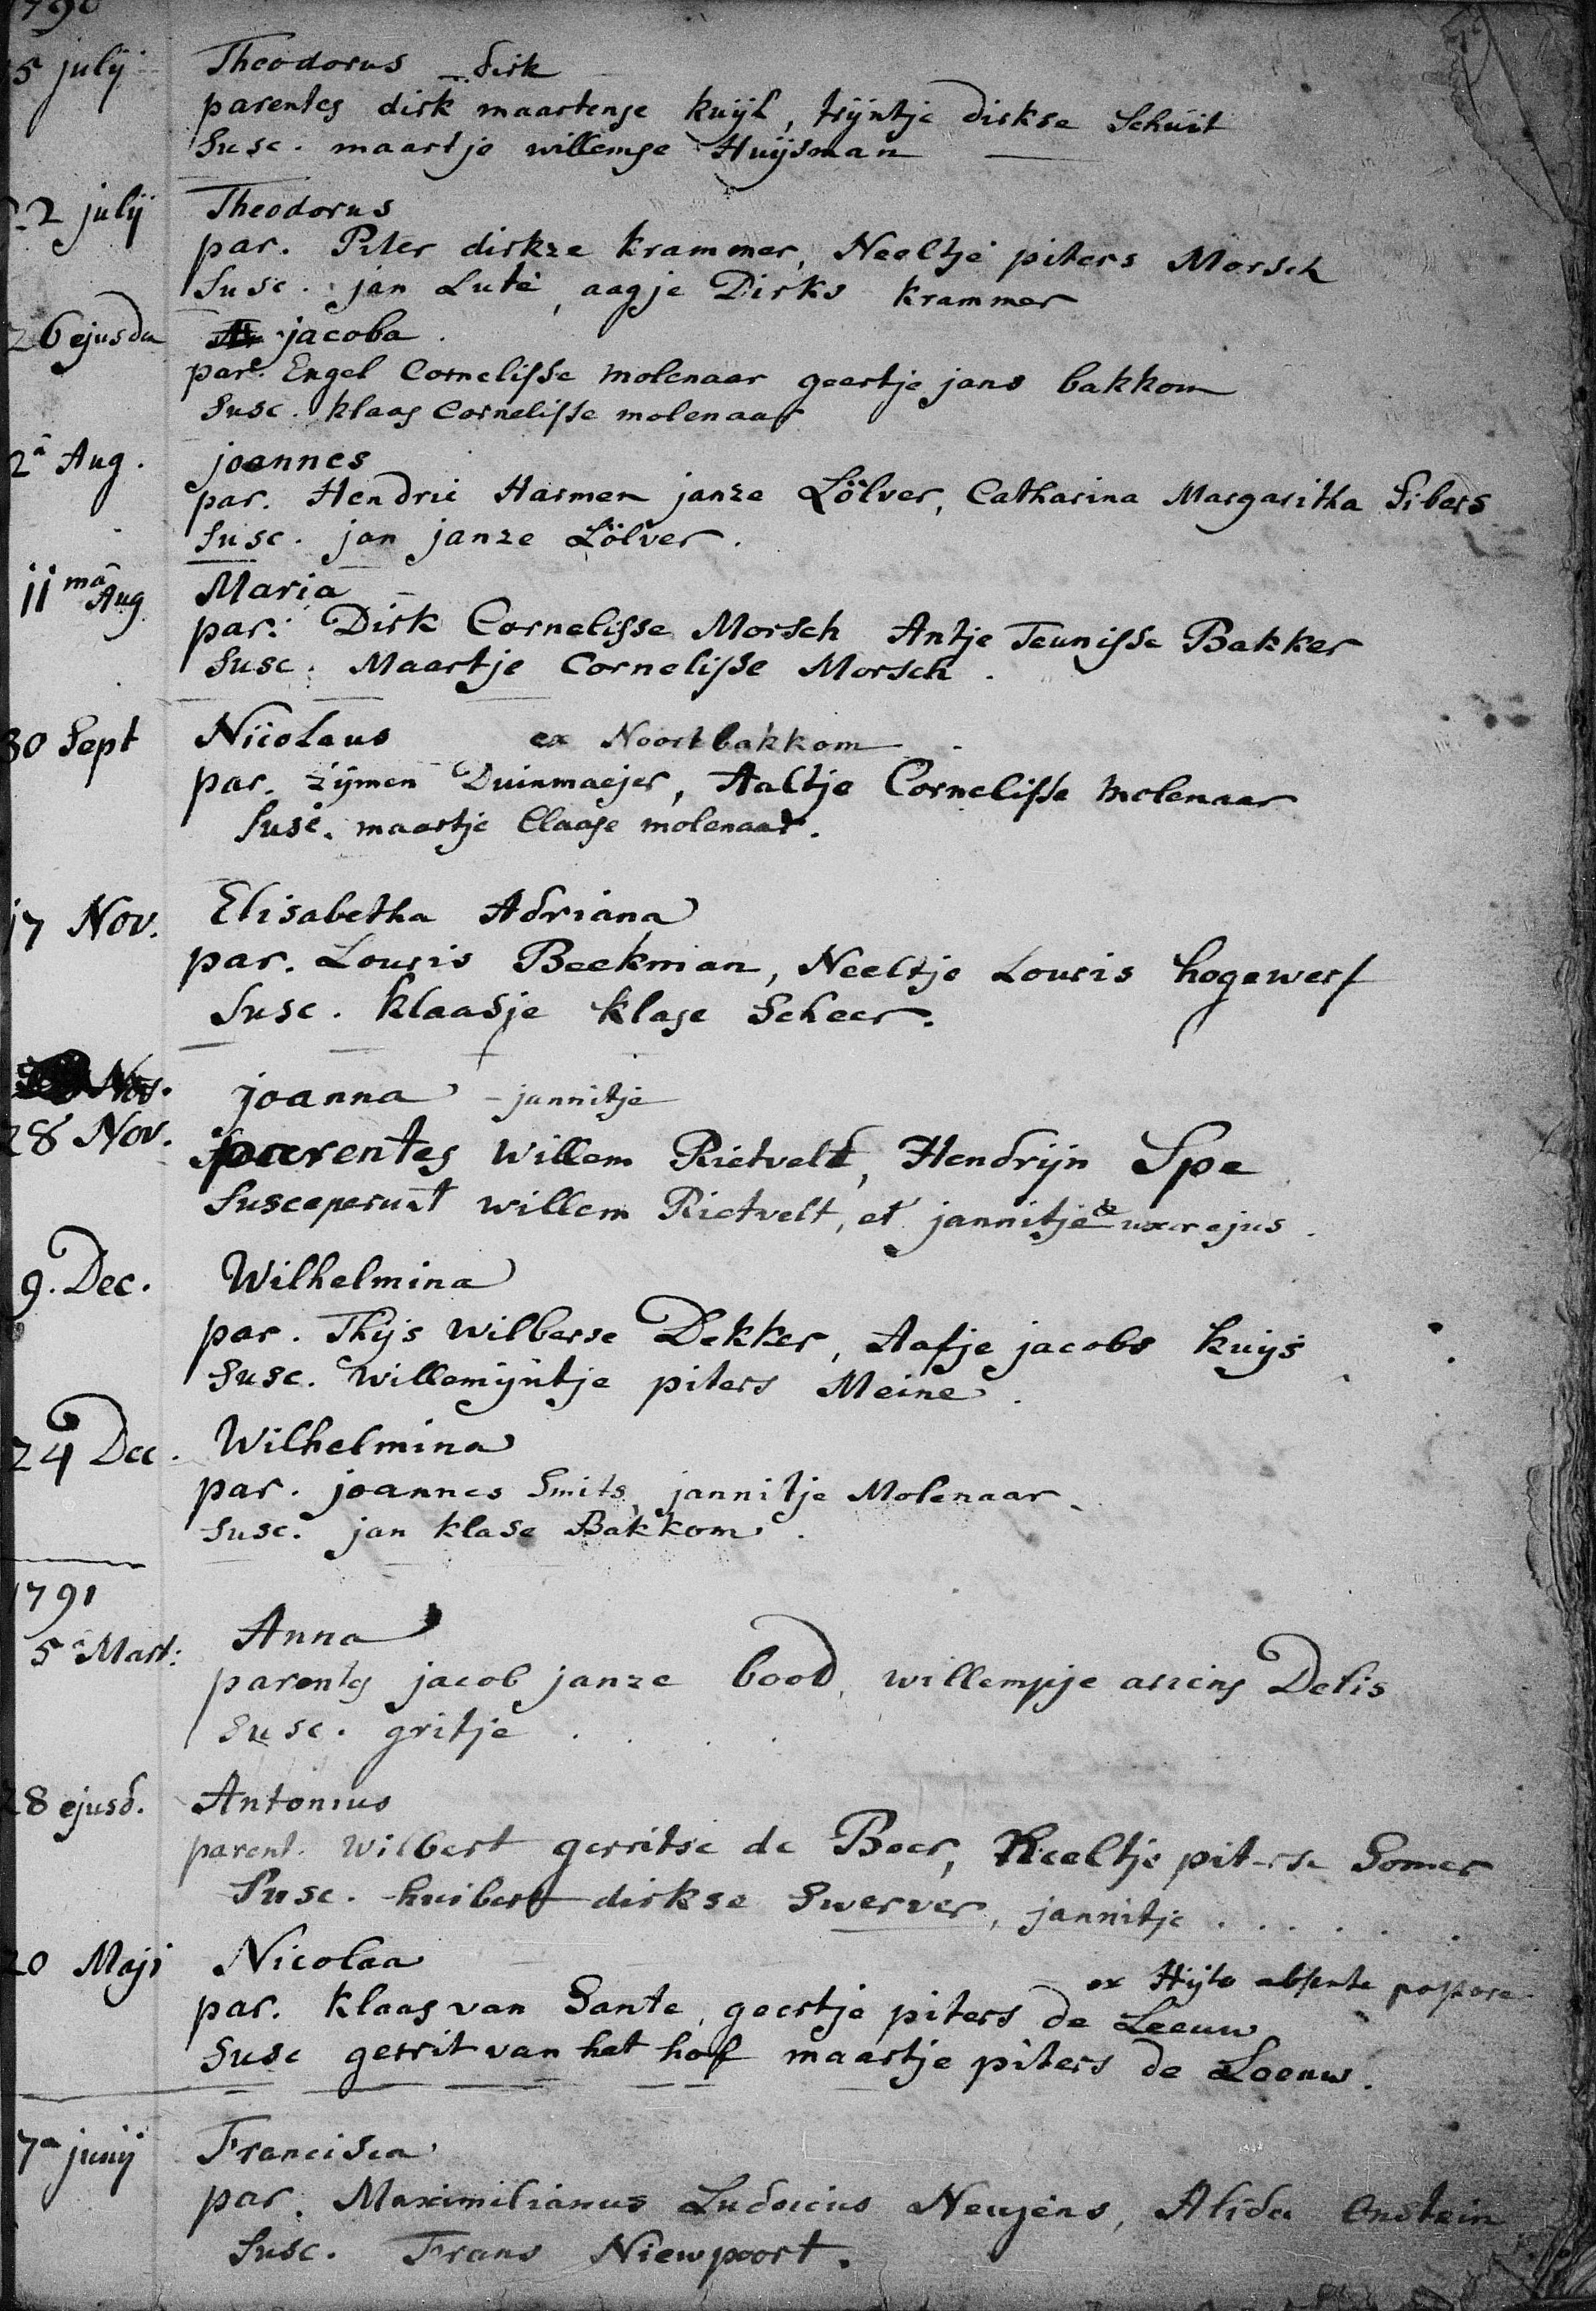 1790
5 julij Theodorus dirk
parentes dirk maartense kuijl, trijntje dirkse Schuit
Susc. maartje willemse Huijsman
22 julij Theodorus
par. Piter dirkze krammer, Neeltje piters Morsch
Susc. jan Lute, aagje Dirks krammer
26 ejusdm jacoba
par. Engel Cornelisse molenaar geertje jans bakkom
Susc. klaas Cornelisse molenaar
2a Aug. joannes
par. Hendric Harmen janze Lölver, Catharina Margaritha Sibers
Susc. jan janze Lölver.
11ma Aug Maria
par. Dirk Cornelisse Morsch Antje Teunisse Bakker
Susc. Maartje Cornelisse Morsch.
30 Sept Nicolaus ex Noortbakkom
par. zijmen Duinmaejer, Aaltje Cornelisse molenaar
Susc. maartje Claase molenaar.
17 Nov. Elisabetha Adriana
par. Louris Beekman, Neeltje Louris hogewerf
Susc. klaasje klase Scheer.
Nov. joanna - jannitje
28 Nov. parentes Willem Rietveld, Hendrijn Spe
Susceperunt willem Rietvelt, et jannitje uxor ejus.
9. Dec. Wilhelmina
par. Thijs Wilberse Dekker, Aafje jacobs kuijs
Susc. Willemijntje piters Meine.
24 Dec. Wilhelmina
par. joannes Smits, jannitje Molenaar.
Susc. jan klase Bakkom.
1791
5a Mart: Anna
parentes jacob janze bood, willempje ariens Delis
Susc. gritje . . . .
28 ejusd. Antonius
parent. Wilbert gerritse de Boer, Neeltje piterse Somer
Susc. huibert dirkse Swerver, jannitje . . . . .
20 Maji Nicolaa
ex Hijlo absente pastore
par. klaas van Sante, geertje piters de Leeuw
Susc gerrit van het hof maartje piters de Leeuw.
7a junij Francisca
par. Maximilianus Ludovicus Neujens, Alida Onstein
Susc. Frans Niewpoort.